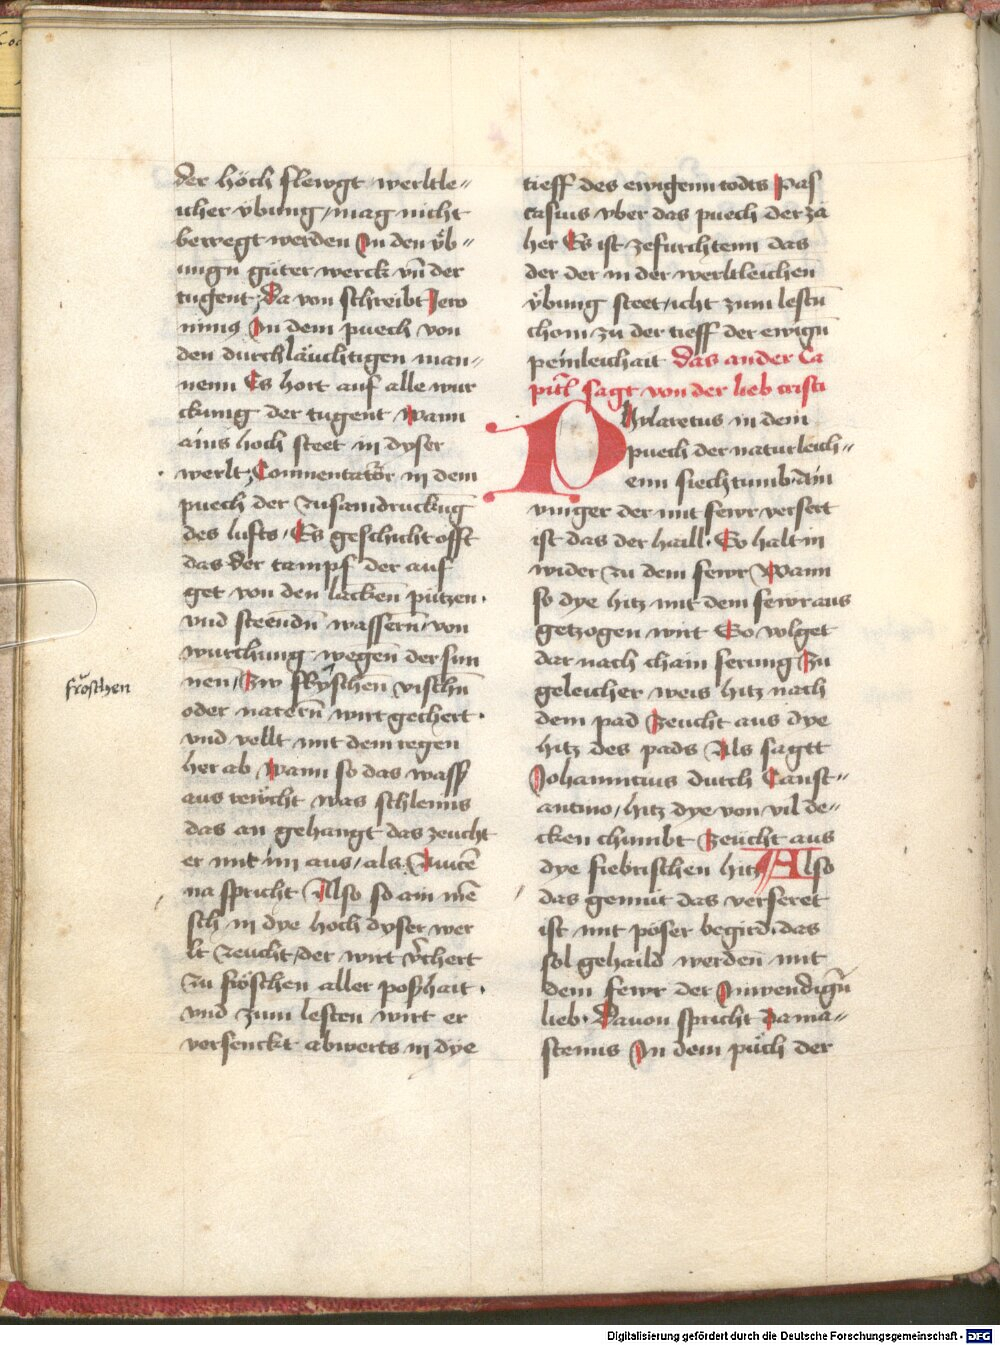 der höch flewgt werltle„
icher vbung / mag nicht
bewegt werden In den vb„
ungn güter werck vn̄ der
tugent / Da von schreibt Jero
nimus In dem puech von
den durchläuchtigen man„
nenn Es hort auf alle wur
ckung der tugent Wann
ains hoch steet in dyser
werlt / Commentator in dem
puech der zusamdruckūg
des lufts / Es geschicht offt
das der tampf der auf
get von den lacken pützen ·
vnd steenndn̄ wassern̄ / von
würchung wegen̄ der sun
nen / Zw fryschen̄ vischn̄
oder natern̄ wirt gechert ·
vnd vellt mit dem regen
her ab Wann so das wasser
aus rewcht was schleims
das an gehangt das zeucht
er mit im aus / als Auicē
na spricht Also so ain mē
sch in dye hoch dyser wer
lt zeucht / der wirt v̄chert
zu fröschen aller poszhait ·
vnd zum lesten wirt er
versenckt abwerts in dye
fröschen
tieff des ewigenn todts Pas
casius vber das puech der zä
her Es ist zefurchtenn das
der der in der werltleichen
vbung steet / icht zum lestn̄
chom zu der tieff der ewign̄
peinleichait Das ander Ca
pitl sagt von der lieb cristi
Philaretus in dem
puech der naturleich„
enn siechtumb · Ain
vinger der mit fewr versert
ist das der haill · So halt in
wider zu dem fewr Wann
so dye hitz mit dem fewr aus
getzogen wirt So volget
dar nach chain serung Zu
geleicher weis hitz nach
dem pad Zeucht aus dye
hitz des pads Als sagtt
Johannicius durch Const„
antino / hitz dye von vil de„
cken chumbt Zeucht aus
dye fiebrischen hitz Also
das gemüt das verseret
ist mit pöser begird · das
sol gehaild werden̄ mit
dem fewr der Inwendign̄
lieb · Dauon spricht Dama„
scenus In dem püch der
Digitalisierung gefördert durch die Deutsche Forschungsgemeinschaft - DFG